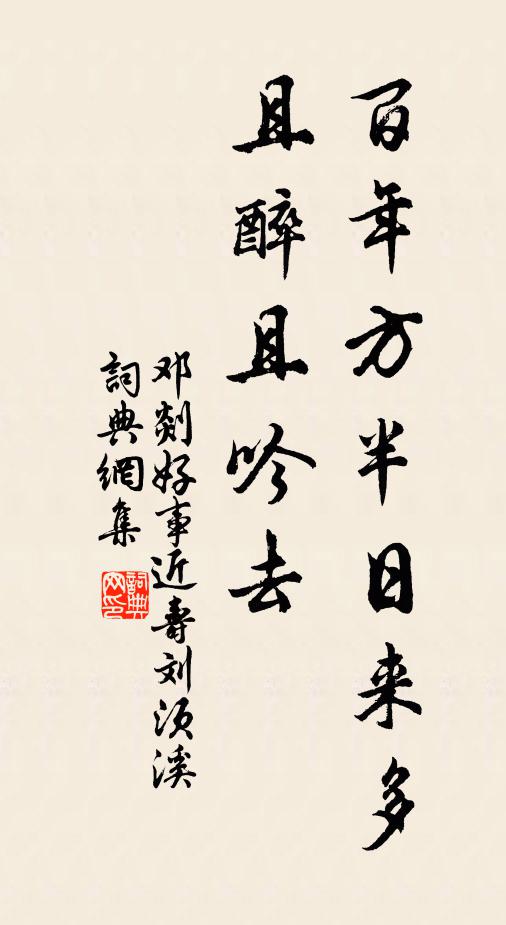 百年方半日来多
且醉且吟去
邓剡好事近寿刘须溪
詞典網集
詞典网印